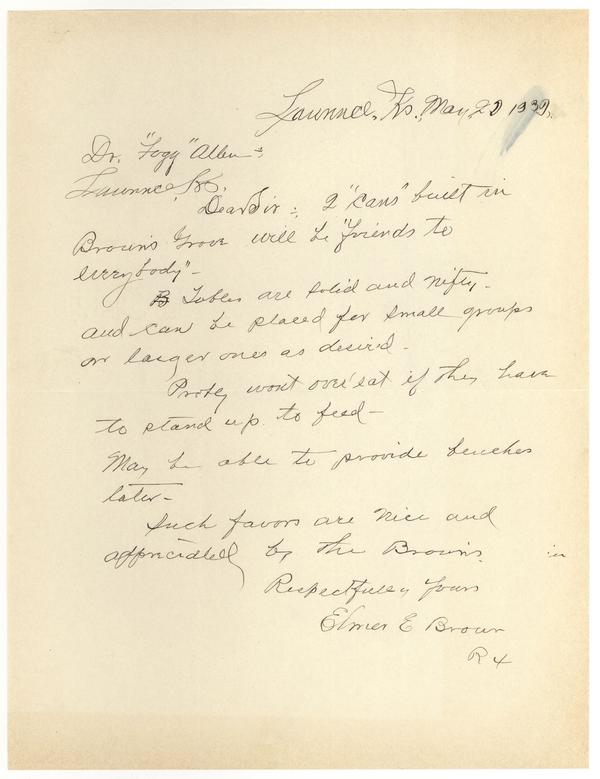 Lawrence, Ks, May 20 1932,
Dr. "Fogg" Allen:
Lawrence, Ks.
Dear Sir:, 2 "cans" built in
Brown's Grove will be "friends to
everybody"-
Tables are solid and nifty-
and can be placed for small groups
or larger ones as desird-
Proby wont over'eat if they have
to stand up to feed-
May be able to provide benches
later-
Such favors are nice and
appriciated by the Browns.
Respectfully Yours
Elmer E Brown
R 4